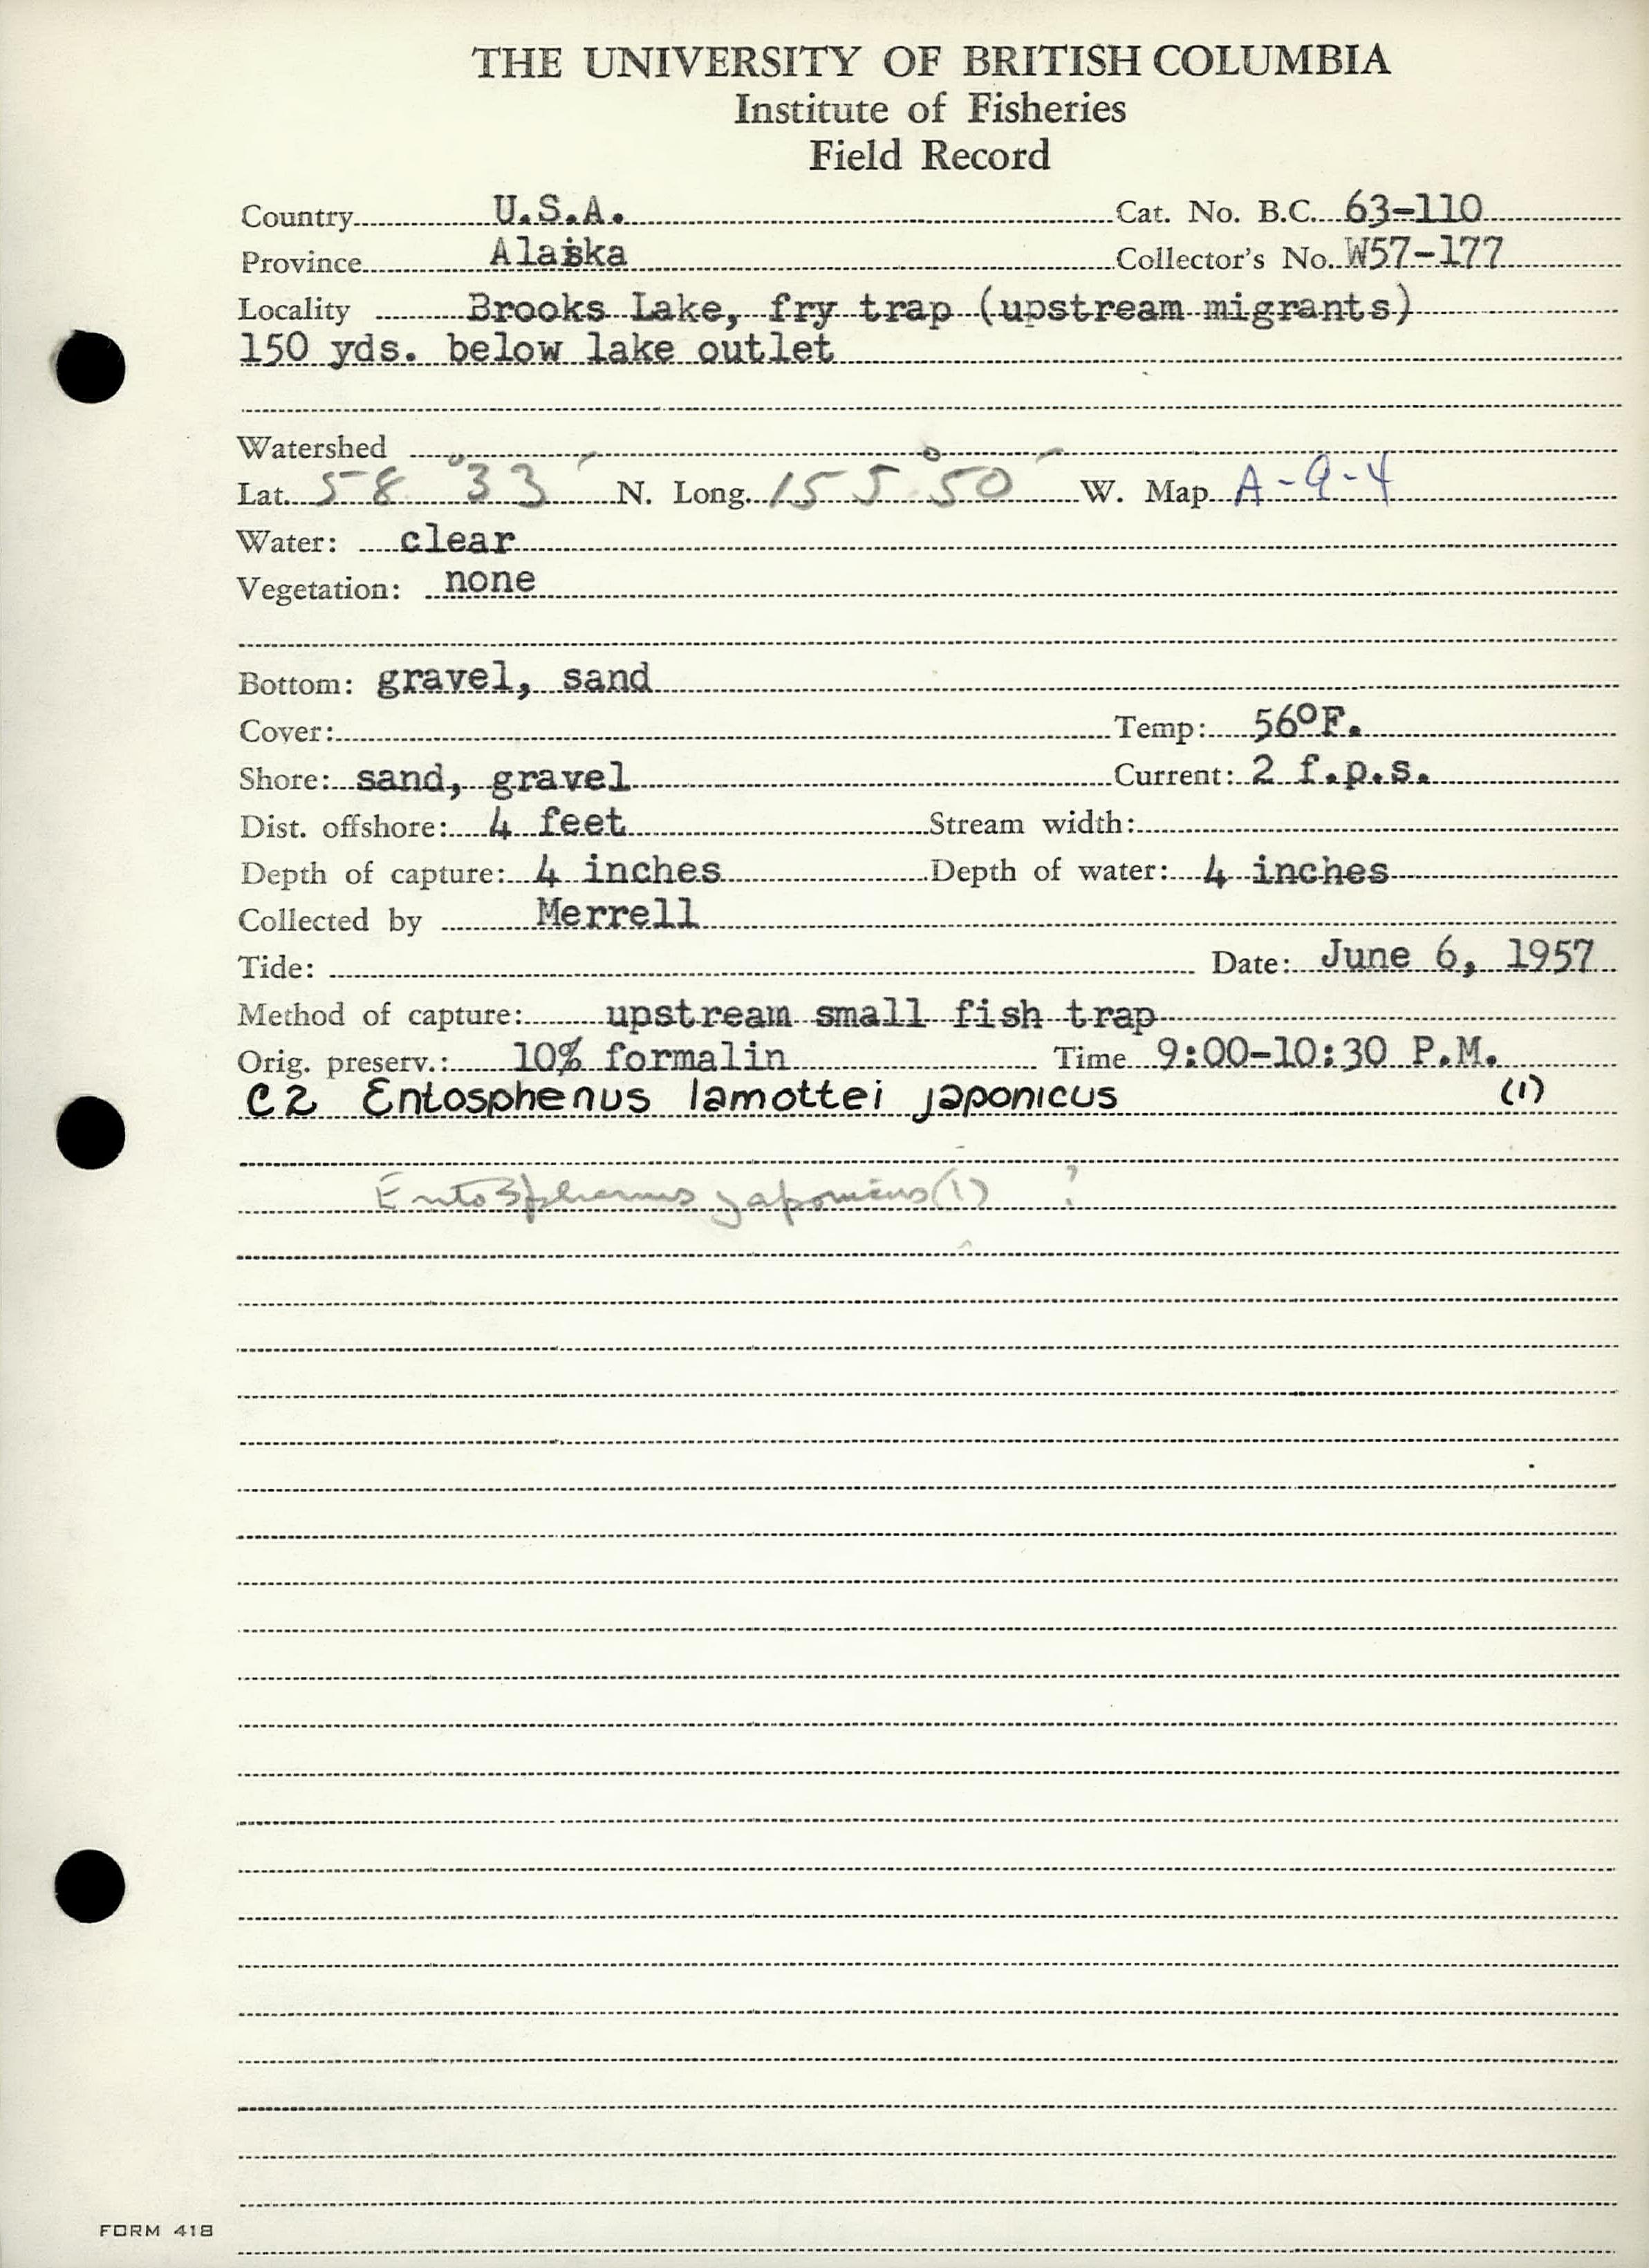 THE UNIVERSITY OF BRITISH COLUMBIA
Institute of Fisheries
Field Record
Country U.S.A. Cat. No. B.C. 63-110
Province Alaska Collector's No. W57-177
Locality Brooks Lake, fry trap (upstream migrants)
150 yds. below lake outlet
Watershed
Lat. 58°33´ N. Long. 155°50´ W. Map A-9-4
Water: clear
Vegetation: none
Bottom: gravel, sand
Cover: Temp: 56°F.
Shore: sand, gravel Current: 2 f.p.s.
Dist. offshore: 4 feet Stream width:
Depth of capture: 4 inches Depth of water: 4 inches
Collected by Merrell
Tide: Date: June 6, 1957
Method of capture: upstream small fish trap
Orig. preserv.: 10% formalin Time 9:00-10:30 P.M.
C2 Entosphenus lamottei japonicus (1)
Entosphenus japonicus (1) ?
FORM 418